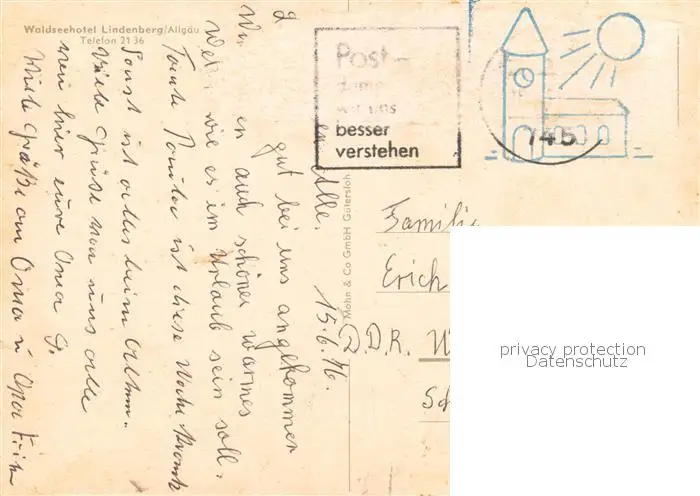 Waldseehotel Lindenberg/Allgäu
Telefon 21 36
Post-
damit
wir uns
besser
verstehen
745
Mohn & Co GmbH Gütersloh
15.6.76.
Alle.
gut bei uns angekommen
auch schönes warmes
wie es im Urlaub sein soll.
Tante ist diese Woche krank
Sonst ist alles beim Alten.
Viele Grüße von uns alle
von hier eure Oma G.
Viele Grüße an Oma u Opa
Familie
Erich
D.D.R. W
Sch
privacy protection
Datenschutz